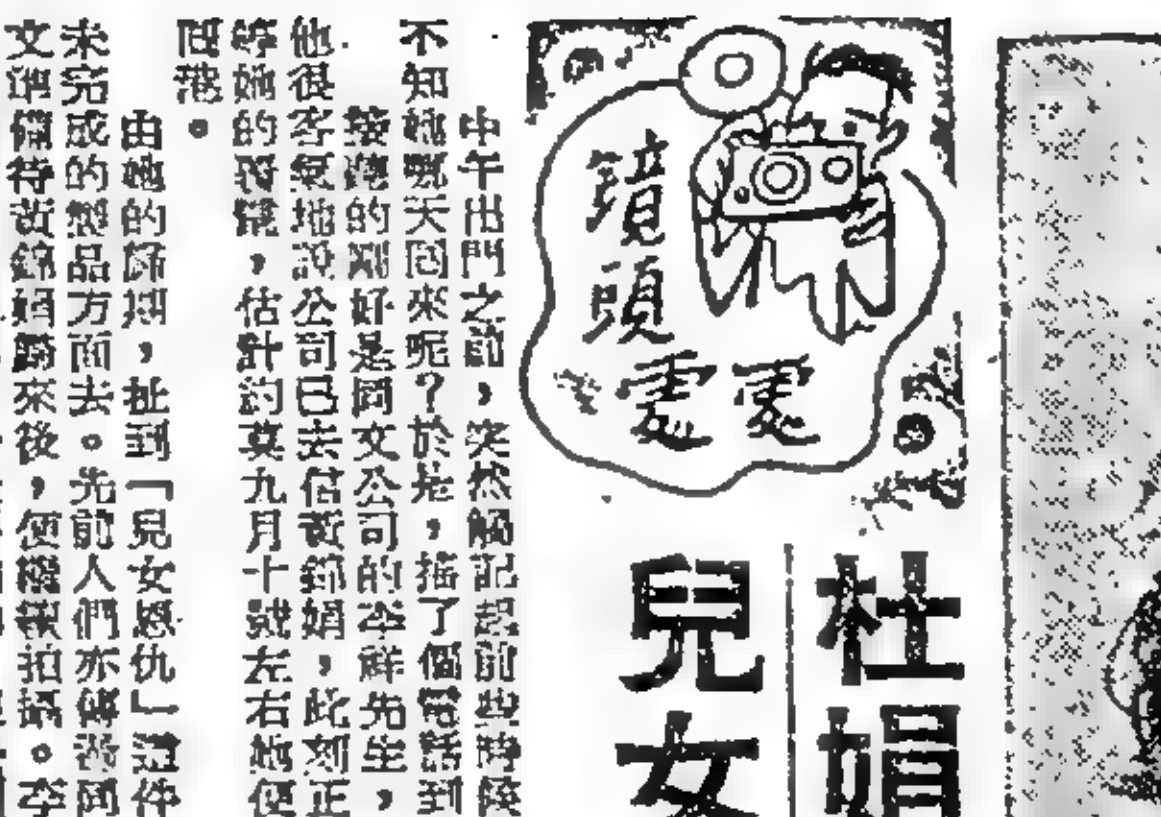 杜娟
兒女
鏡頭
處處
中午出門之前，突然觸記起前些時候
不知她哪天回來呢？於是，搖了個電話到
接聽的剛好是國文公司的李祥先生，
他很客氣地說公司已去信黃錦娟，此刻正
等她的回覆，估計約莫九月十號左右她便
回港。
由她的歸期，扯到「兒女恩仇」這件
未完成的製品方面去。先前人們亦傳說國
文準備待黃錦娟歸來後，便繼續拍攝。李